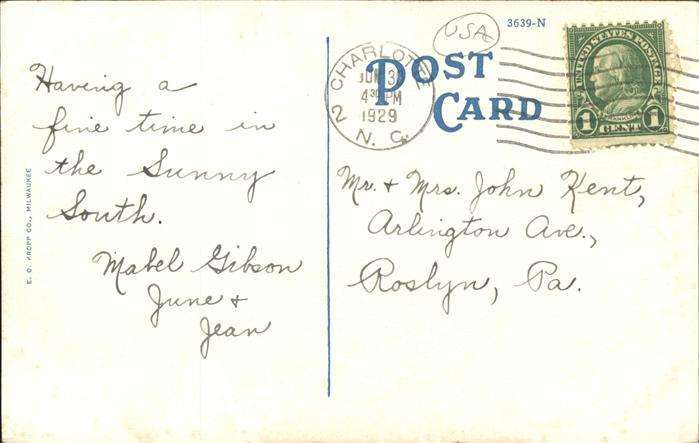 3639-N
USA
POST
CARD
CHARLOTTE
JUN 3
4 30 PM
1929
2 N. C.
UNITED STATES POSTAGE
FRANKLIN
1 CENT 1
Having a
fine time in
the Sunny
South.
Mabel Gibson
June +
Jean
Mr. + Mrs. John Kent,
Arlington Ave.,
Roslyn, Pa.
E. C. KROPP CO., MILWAUKEE